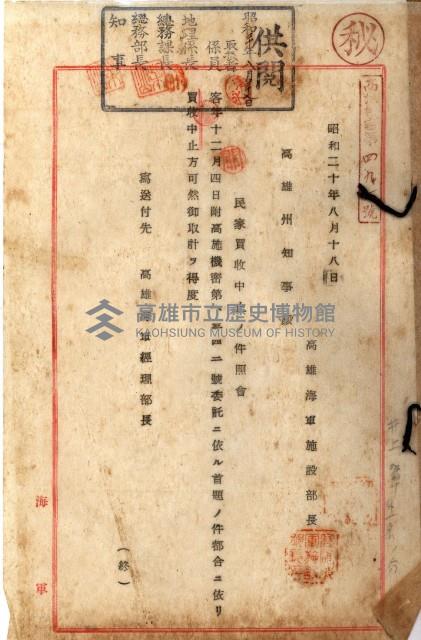 秘
供閲
昭和 年八月 日
取扱者
係員
地理係長
總務課長
總務部長
知事
昭和二十年八月十八日
高雄海軍施設部長
高雄州知事殿
民家買收中止ノ件照會
客年十二月四日附高施機密第 四二號委託ニ依ル首題ノ件都合ニ依リ
買收中止方可然御取計ヲ得度
寫送付先　高雄海軍經理部長
(終)
海軍
高雄市立歷史博物館
KAOHSIUNG MUSEUM OF HISTORY